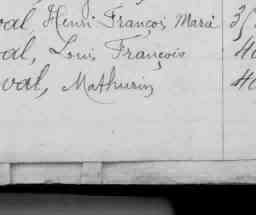 val, Henri François Marie 3
val, Louis François 40
val, Mathurin 40